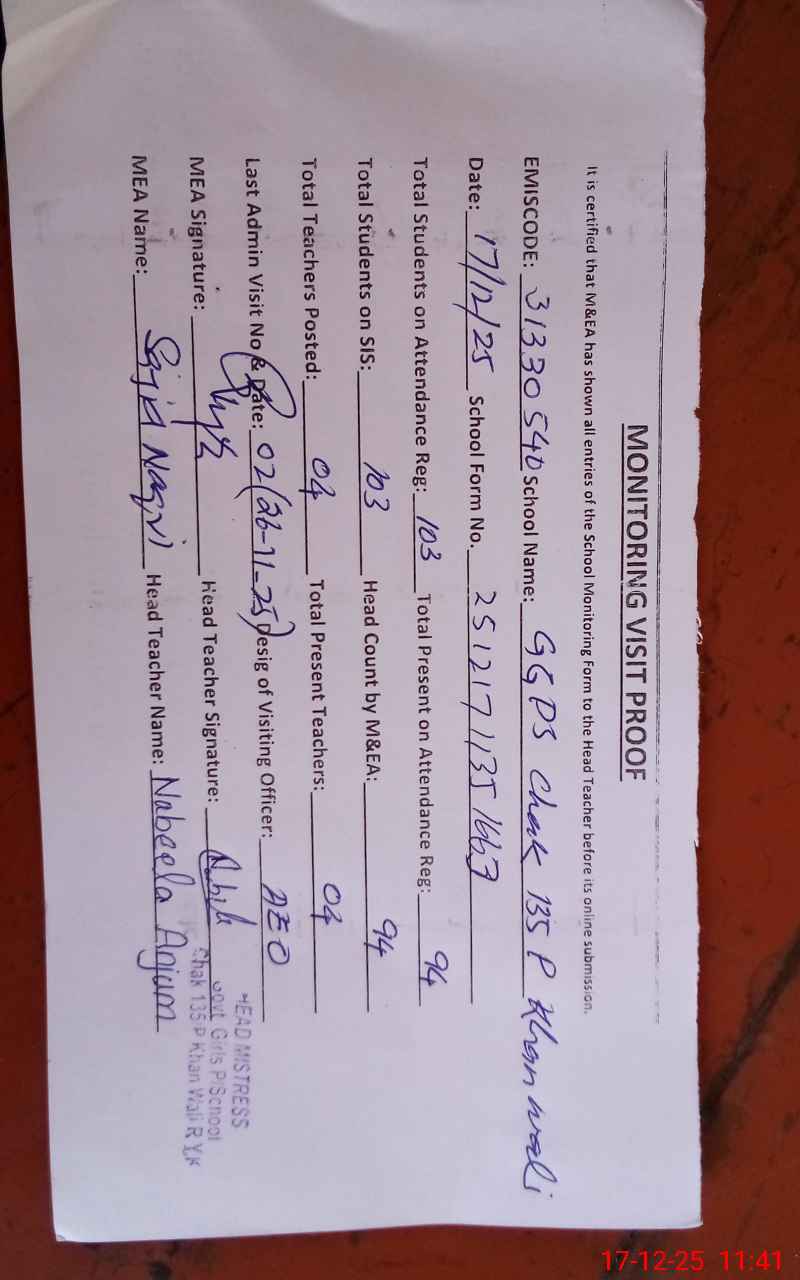 MONITORING VISIT PROOF
It is certified that M&EA has shown all entries of the School Monitoring Form to the Head Teacher before its online submission.
EMISCODE: 31330540 School Name: GGPS Chak 135 P Khan wali
Date: 17/12/25 School Form No. 25121711351663
Total Students on Attendance Reg: 103 Total Present on Attendance Reg: 94
Total Students on SIS: 103 Head Count by M&EA: 94
Total Teachers Posted: 04 Total Present Teachers: 04
Last Admin Visit No & Date: 02(26-11-25) Desig of Visiting Officer: AEO
MEA Signature: Head Teacher Signature: Nabila
MEA Name: Sajid Naqvi Head Teacher Name: Nabeela Anjum
HEAD MISTRESS
Govt Girls P/School
Chak 135 P Khan Wali R Y K
17-12-25 11:41